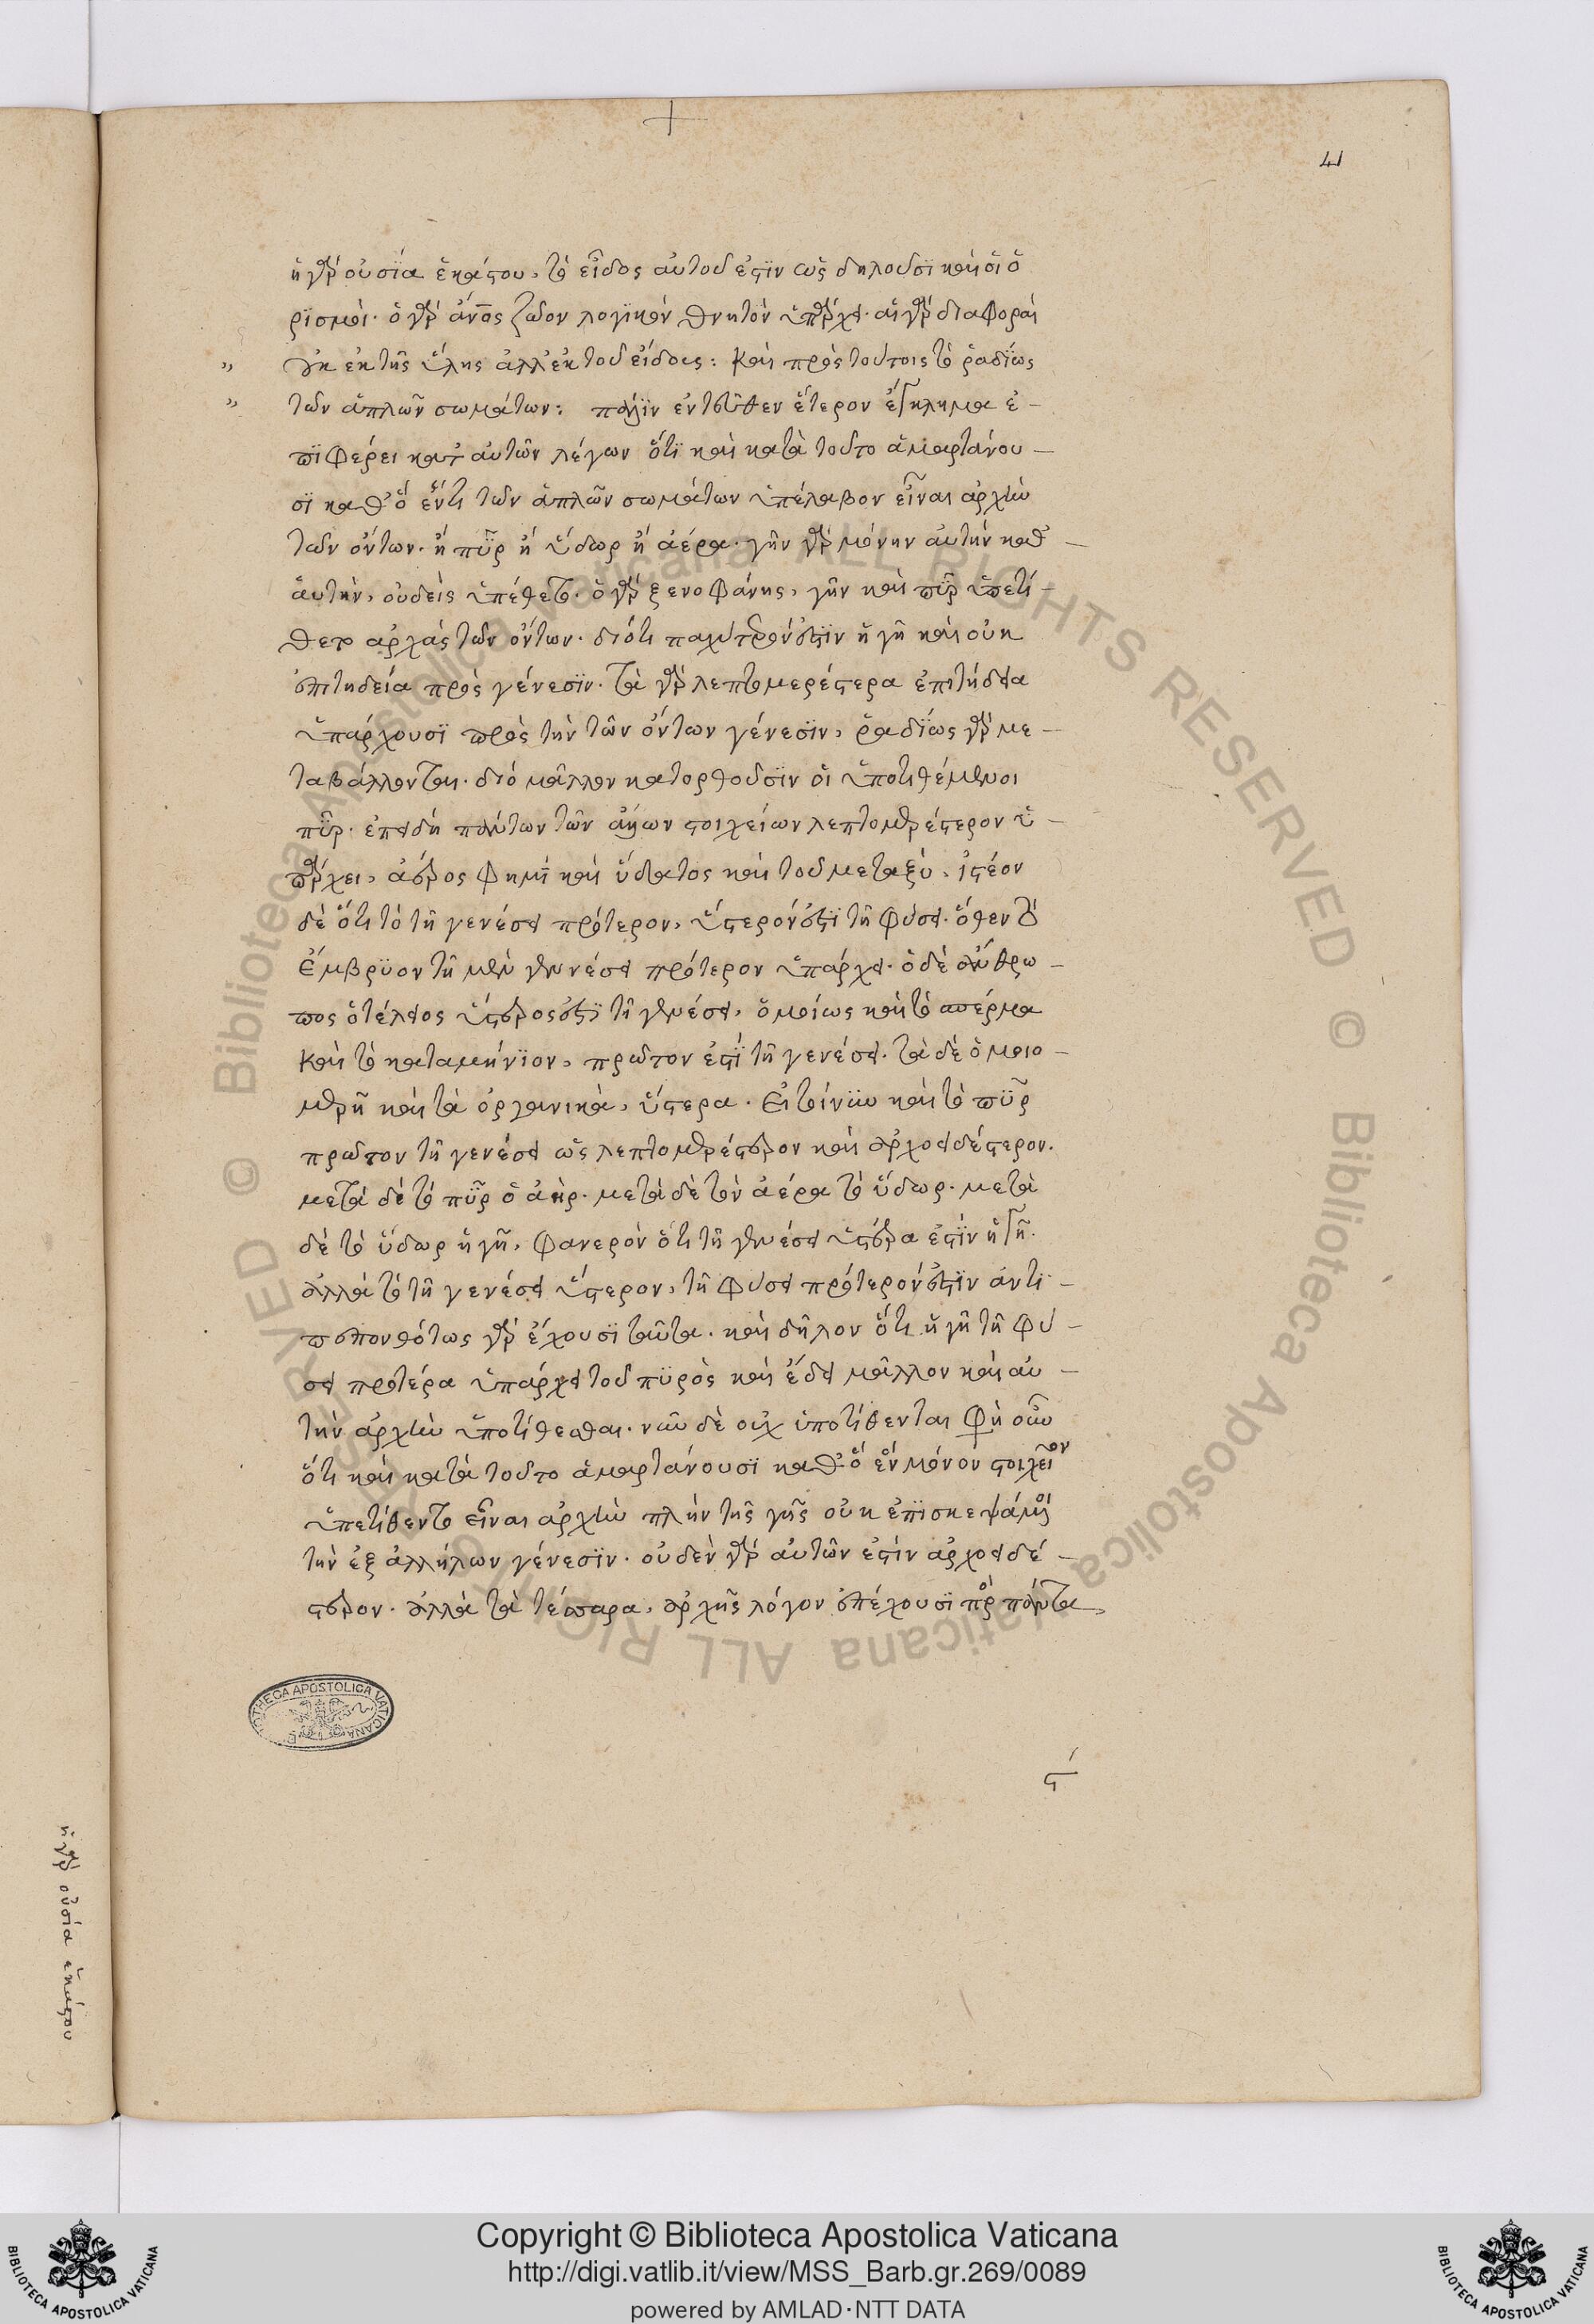 41
ἡ γὰρ οὐσΐα ἑκάστου, τὸ εἶδος αὐτοῦ ἐστϊν ὡς δηλοῦσϊ καὶ οἱ ὁ
ρϊσμοί· ὁ γὰρ ἄνος ζῶον λογϊκὸν θνητὸν ὑπάρχει· αἱ γὰρ διαφοραὶ
οὐκ ἐκ τῆς ὕλης ἀλλ' ἐκ τοῦ εἴδους: Καὶ πρὸς τούτοις τὸ ῥαδΐως
τῶν ἁπλῶν σωμάτων: πάλϊν ἐντεῦθεν ἕτερον ἔγκλημα ἐ-
πϊφέρει κατ' αὐτῶν λέγων ὅτϊ καὶ κατὰ τοῦτο ἁμαρτάνου-
σϊ καθ' ὃ ἕν τι τῶν ἁπλῶν σωμάτων ὑπέλαβον εἶναι ἀρχὴν
τῶν ὄντων· ἢ πῦρ ἢ ὕδωρ ἢ ἀέρα· γῆν γὰρ μόνην αὐτὴν καθ'-
αὑτὴν, οὐδεὶς ὑπέθετο· ὁ γὰρ ξενοφάνης, γῆν καὶ πῦρ ὑπετί-
θετο ἀρχὰς τῶν ὄντων· διότι παχύτερόν ἐστϊν ἡ γῆ καὶ οὐκ
ἐπιτηδεία πρὸς γένεσϊν· τὰ γὰρ λεπτομερέστερα ἐπιτήδεια
ὑπάρχουσϊ πρὸς τὴν τῶν ὄντων γένεσϊν, ῥαδΐως γὰρ με-
ταβάλλονται· διὸ μᾶλλον κατορθοῦσϊν οἱ ὑποτιθέμενοι
πῦρ· ἐπειδὴ πάντων τῶν ἄλλων στοιχείων λεπτομερέστερον ὑ-
πάρχει, ἀέρος φημὶ καὶ ὕδατος καὶ τοῦ μεταξὺ, ἰστέον
δὲ ὅτι τὸ τῆ γενέσει πρότερον, ὕστερόν ἐστϊ τῆ φύσει· ὅθεν τὸ
ἔμβρϋον τῆ μὲν γενέσει πρότερον ὑπάρχει· ὁ δὲ ἄνθρω-
πος ὁ τέλειος ὕστερος ἐστὶ τῆ γενέσει, ὁμοίως καὶ τὸ σπέρμα
καὶ τὸ καταμήνϊον, πρῶτον ἐστϊ τῆ γενέσει· τὰ δὲ ὁμοιο-
μερῆ καὶ τὰ ὀργανικὰ, ὕστερα· Εἰ τοίνϋν καὶ τὸ πῦρ
πρῶτον τῆ γενέσει ὡς λεπτομερέστερον καὶ ἀρχοειδέστερον·
μετὰ δὲ τὸ πῦρ ὁ ἀήρ· μετὰ δὲ τὸν ἀέρα τὸ ὕδωρ· μετὰ
δὲ τὸ ὕδωρ ἡ γῆ, φανερὸν ὅτι τῆ γενέσει ὑστέρα ἐστὶν ἡ γῆ·
ἀλλὰ τὸ τῆ γενέσει ὕστερον, τῆ φύσει πρότερόν ἐστϊν ἀντϊ-
πεπονθότως γὰρ ἔχουσϊ ταῦτα· καὶ δῆλον ὅτι ἡ γῆ τῆ φύ-
σει προτέρα ὑπάρχει τοῦ πϋρὸς καὶ ἔδει μᾶλλον καὶ αὐ-
τὴν ἀρχὴν ὑποτίθεσθαι· νῦν δὲ οὐχ ὑποτίθενται φη οὖν
ὅτι καὶ κατὰ τοῦτο ἁμαρτάνουσϊ καθ' ὃ ἓν μόνον στοιχεῖον
ὑπετίθεντο εἶναι ἀρχὴν πλὴν τῆς γῆς οὐκ ἐπϊσκεψάμενοι
τὴν ἐξ ἀλλήλων γένεσϊν· οὐδὲν γὰρ αὐτῶν ἐστὶν ἀρχοειδέ-
στερον· ἀλλὰ τὰ τέσσαρα, ἀρχῆς λόγον ἐπέχουσϊ πρὸς πάντα,
ἡ γὰρ οὐσία ἑκάστου